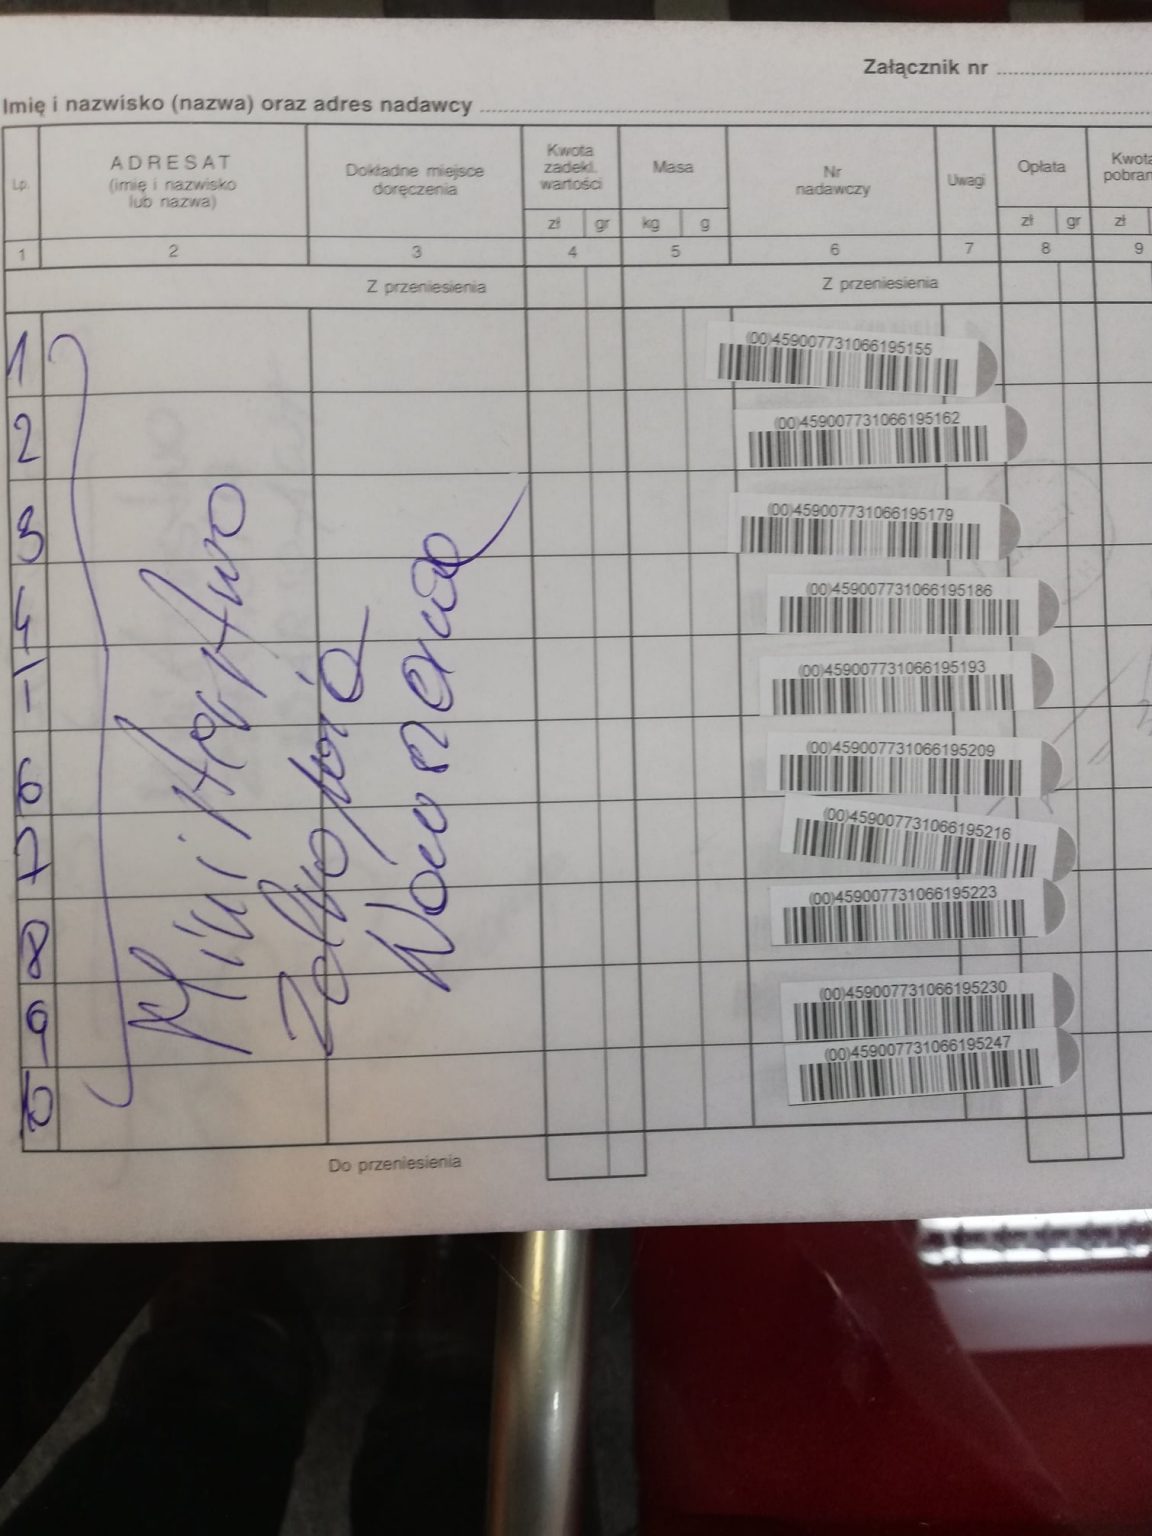 Załącznik nr
Imię i nazwisko (nazwa) oraz adres nadawcy
Lp.
ADRESAT
(imię i nazwisko
lub nazwa)
Dokładne miejsce
doręczenia
Kwota
zadekl.
wartości
Masa
Nr
nadawczy
Uwagi
Opłata
Kwota
pobran
zł gr kg g zł gr zł
1 2 3 4 5 6 7 8 9
Z przeniesienia Z przeniesienia
1 (00)459007731066195155
2 (00)459007731066195162
3 (00)459007731066195179
4 (00)459007731066195186
(00)459007731066195193
6 (00)459007731066195209
7 (00)459007731066195216
8 (00)459007731066195223
9 (00)459007731066195230
10 (00)459007731066195247
Ministerstwo
Zdrowia
Warszawa
Do przeniesienia